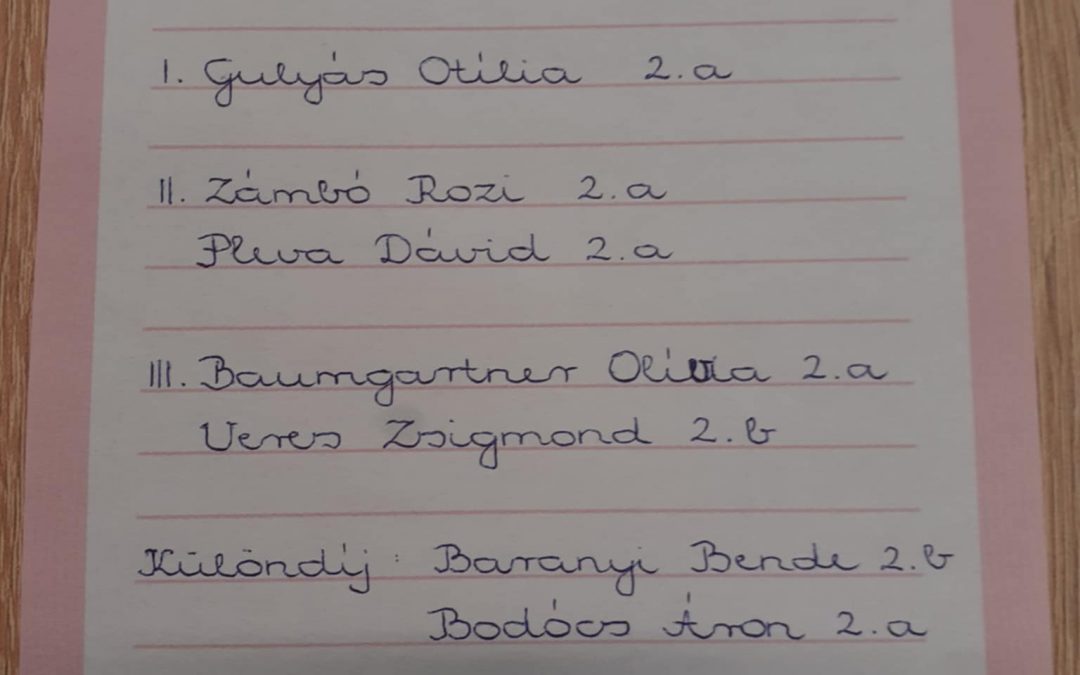 I. Gulyás Otília 2.a
II. Zámbó Rozi 2.a
Pleva Dávid 2.a
III. Baumgartner Olívia 2.a
Veres Zsigmond 2.b
Különdíj: Baranyi Bende 2.b
Bodócs Áron 2.a